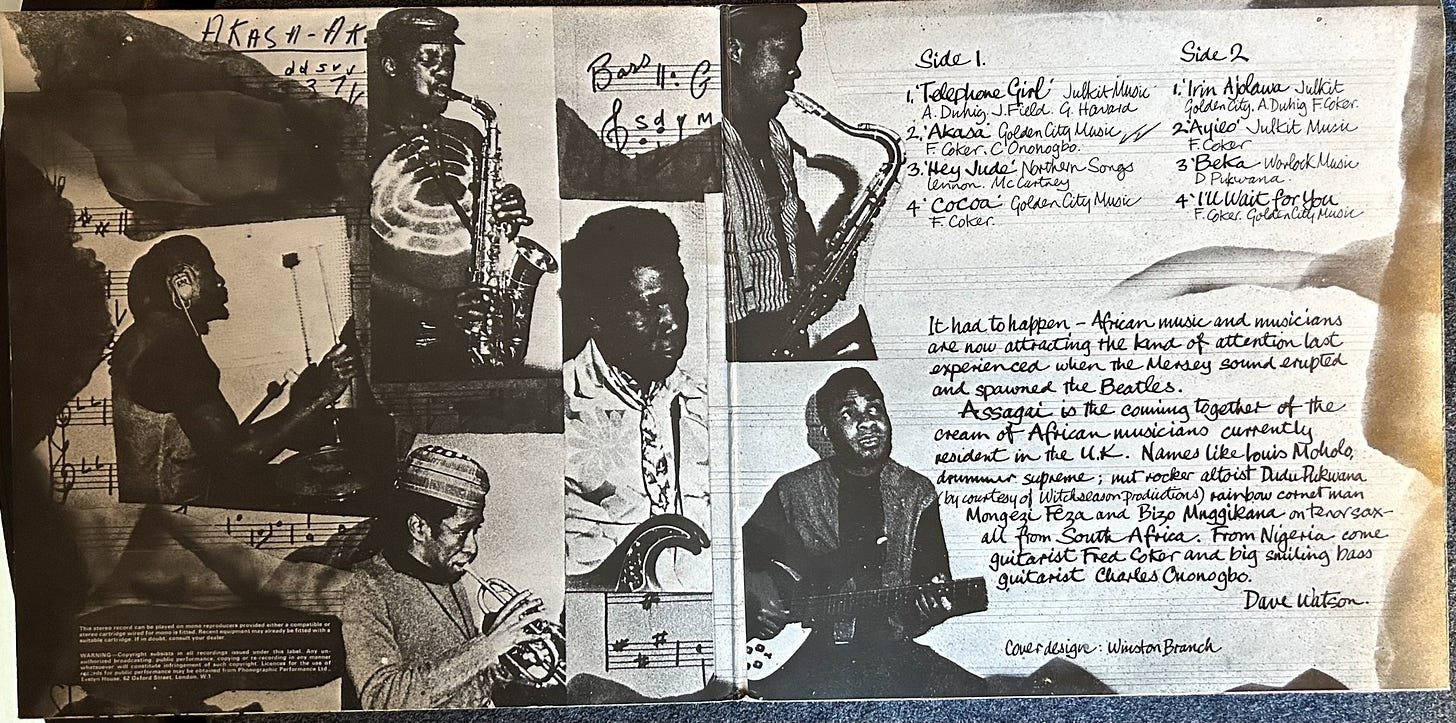 AKASA-AK
d d s v v
3 7
Bass ||: G
s d y m
Side 1.
1. 'Telephone Girl' Julkit Music
A. Duhig. J. Field. G. Havard
2. 'Akasa' Golden City Music
F. Coker. C. Ononogbo.
3. 'Hey Jude' Northern Songs
Lennon. McCartney
4. 'Cocoa' Golden City Music
F. Coker.
Side 2
1. 'Irin Ajolawa' Julkit
Golden City. A. Duhig F. Coker.
2. 'Ayieo' Julkit Music
F. Coker
3 'Beka' Warlock Music
D. Pukwana.
4. 'I'll Wait for You
F. Coker. Golden City Music
It had to happen - African music and musicians
are now attracting the kind of attention last
experienced when the Mersey sound erupted
and spawned the Beatles.
Assagai is the coming together of the
cream of African musicians currently
resident in the U.K. Names like Louis Moholo,
drummer supreme; nut rocker altoist Dudu Pukwana
(by courtesy of Witchseason productions) rainbow cornet man
Mongezi Feza and Bizo Mnggikana on tenor sax-
all from South Africa. From Nigeria come
guitarist Fred Coker and big smiling bass
guitarist Charles Ononogbo.
Dave Watson.
Cover design: Winston Branch
This stereo record can be played on mono reproducers provided either a compatible or
stereo cartridge wired for mono is fitted. Recent equipment may already be fitted with a
suitable cartridge. If in doubt, consult your dealer.
WARNING—Copyright subsists in all recordings issued under this label. Any un-
authorized broadcasting, public performance, copying or re-recording in any manner
whatsoever will constitute infringement of such copyright. Licences for the use of
records for public performance may be obtained from Phonographic Performance Ltd.,
Evelyn House, 62 Oxford Street, London, W.1.